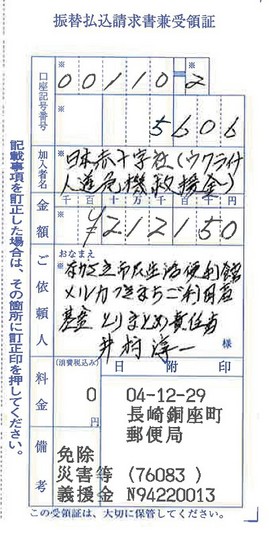 振替払込請求書兼受領証
口座記号番号
00110-2
5606
加入者名
日本赤十字社(ウクライナ
人道危機救援金)
金額
千 百 十 万 千 百 十 円
¥212150
ご依頼人
おなまえ
市民生活便利館
メルカつきまちご利用者
基金 とりまとめ責任者
井村淳一
様
料金
(消費税込み)
0
円
日附印
04-12-29
長崎銅座町
郵便局
備考
免除
災害等 (76083 )
義援金 N94220013
記載事項を訂正した場合は、その箇所に訂正印を押してください。
この受領証は、大切に保管してください。